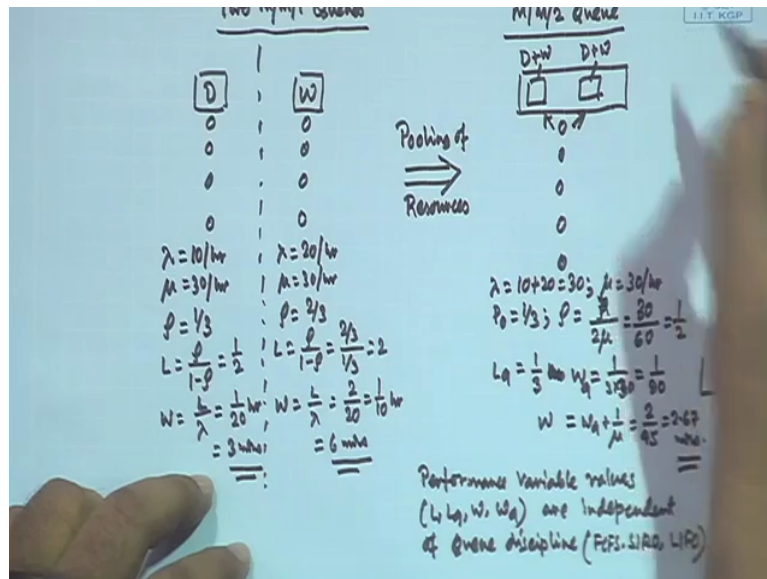 Two M/M/1 Queues
D
W
λ = 10/hr
μ = 30/hr
ρ = 1/3
L = ρ/(1-ρ) = 1/2
W = L/λ = 1/20 hr
= 3 mins
λ = 20/hr
μ = 30/hr
ρ = 2/3
L = ρ/(1-ρ) = (2/3)/(1/3) = 2
W = L/λ = 2/20 = 1/10 hr
= 6 mins
Pooling of
Resources
M/M/2 Queue
D+W D+W
λ = 10+20 = 30; μ = 30/hr
P0 = 1/3; ρ = λ/2μ = 30/60 = 1/2
Lq = 1/3 Wq = 1/3×30 = 1/90
L
W = Wq + 1/μ = 2/45 = 2.67
mins.
Performance variable values
(L, Lq, W, Wq) are independent
of Queue discipline (FCFS, SIRO, LIFO)
I.I.T. KGP